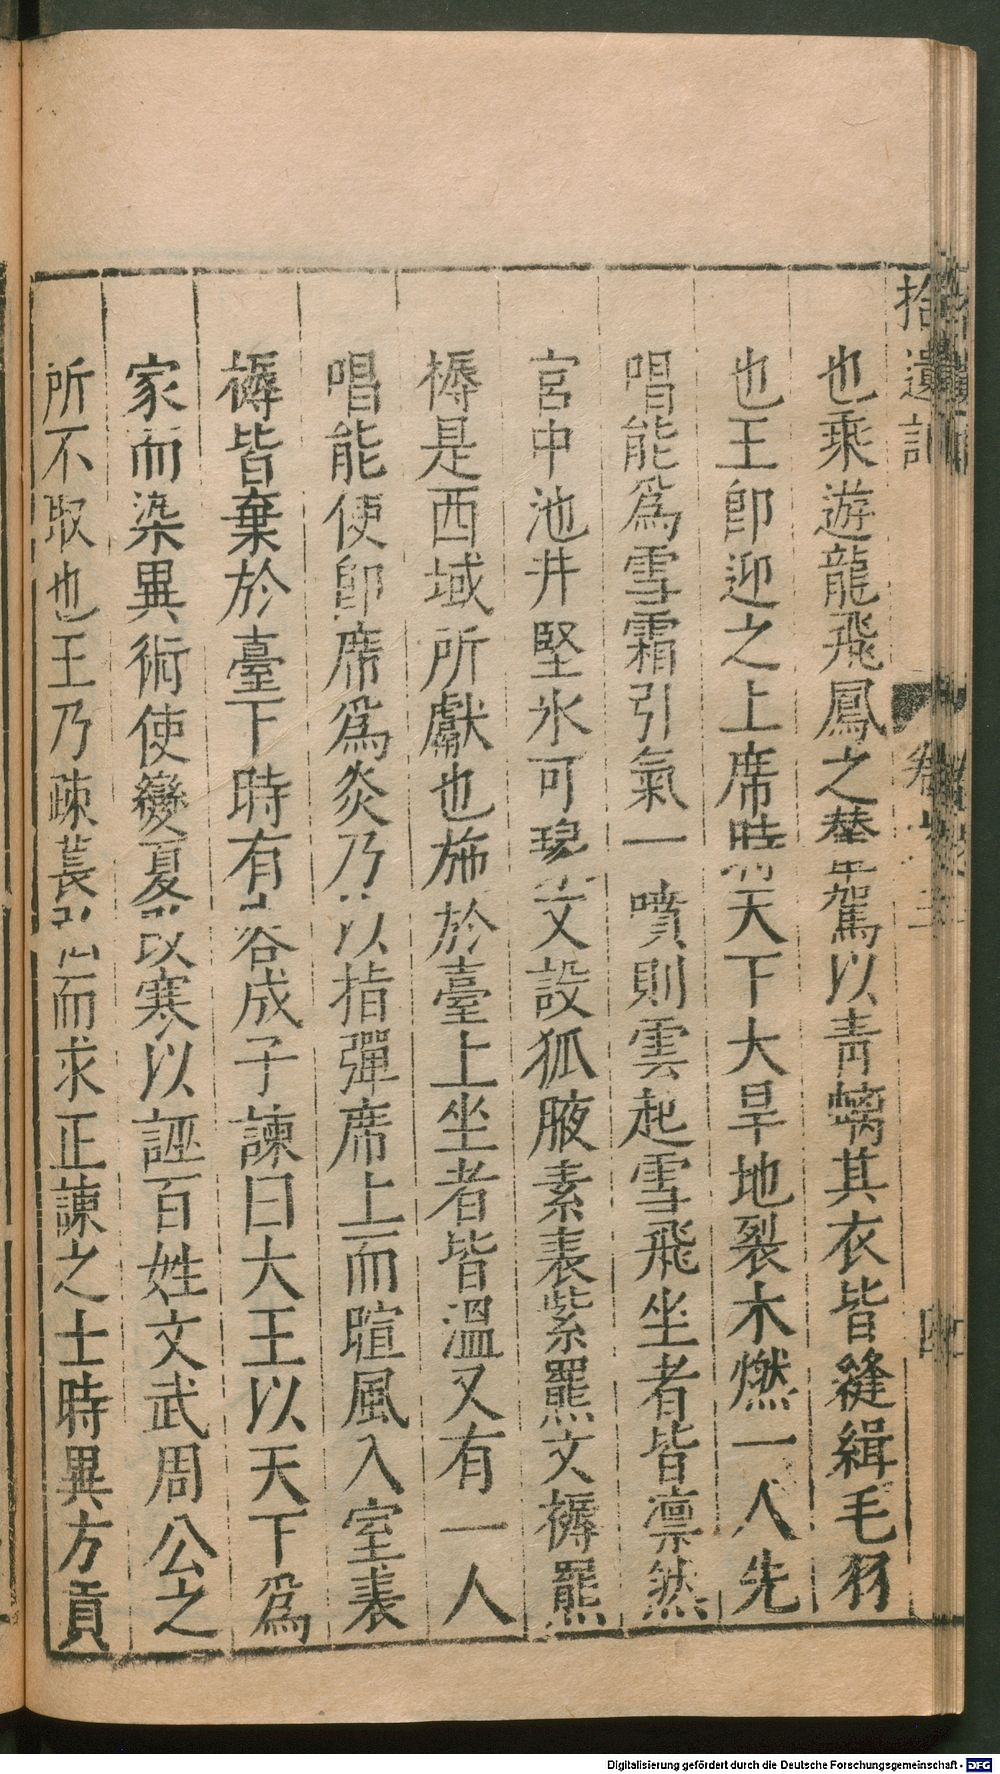 拾遺記
卷
也乘遊龍飛鳳之輦駕以靑螭其衣皆縫緝毛羽
也王卽迎之上席時天下大旱地裂木燃一人先
唱能爲雪霜引氣一噴則雲起雪飛坐者皆凛然
宮中池井堅氷可瑑又設狐腋素裘紫羆文褥羆
褥是西域所獻也施於臺上坐者皆溫又有一人
唱能使卽席爲炎乃以指彈席上而暄風入室裘
褥皆棄於臺下時有容成子諫曰大王以天下爲
家而染異術使變夏改寒以誣百姓文武周公之
所不取也王乃疎萇弘而求正諫之士時異方貢
Digitalisierung gefördert durch die Deutsche Forschungsgemeinschaft - DFG